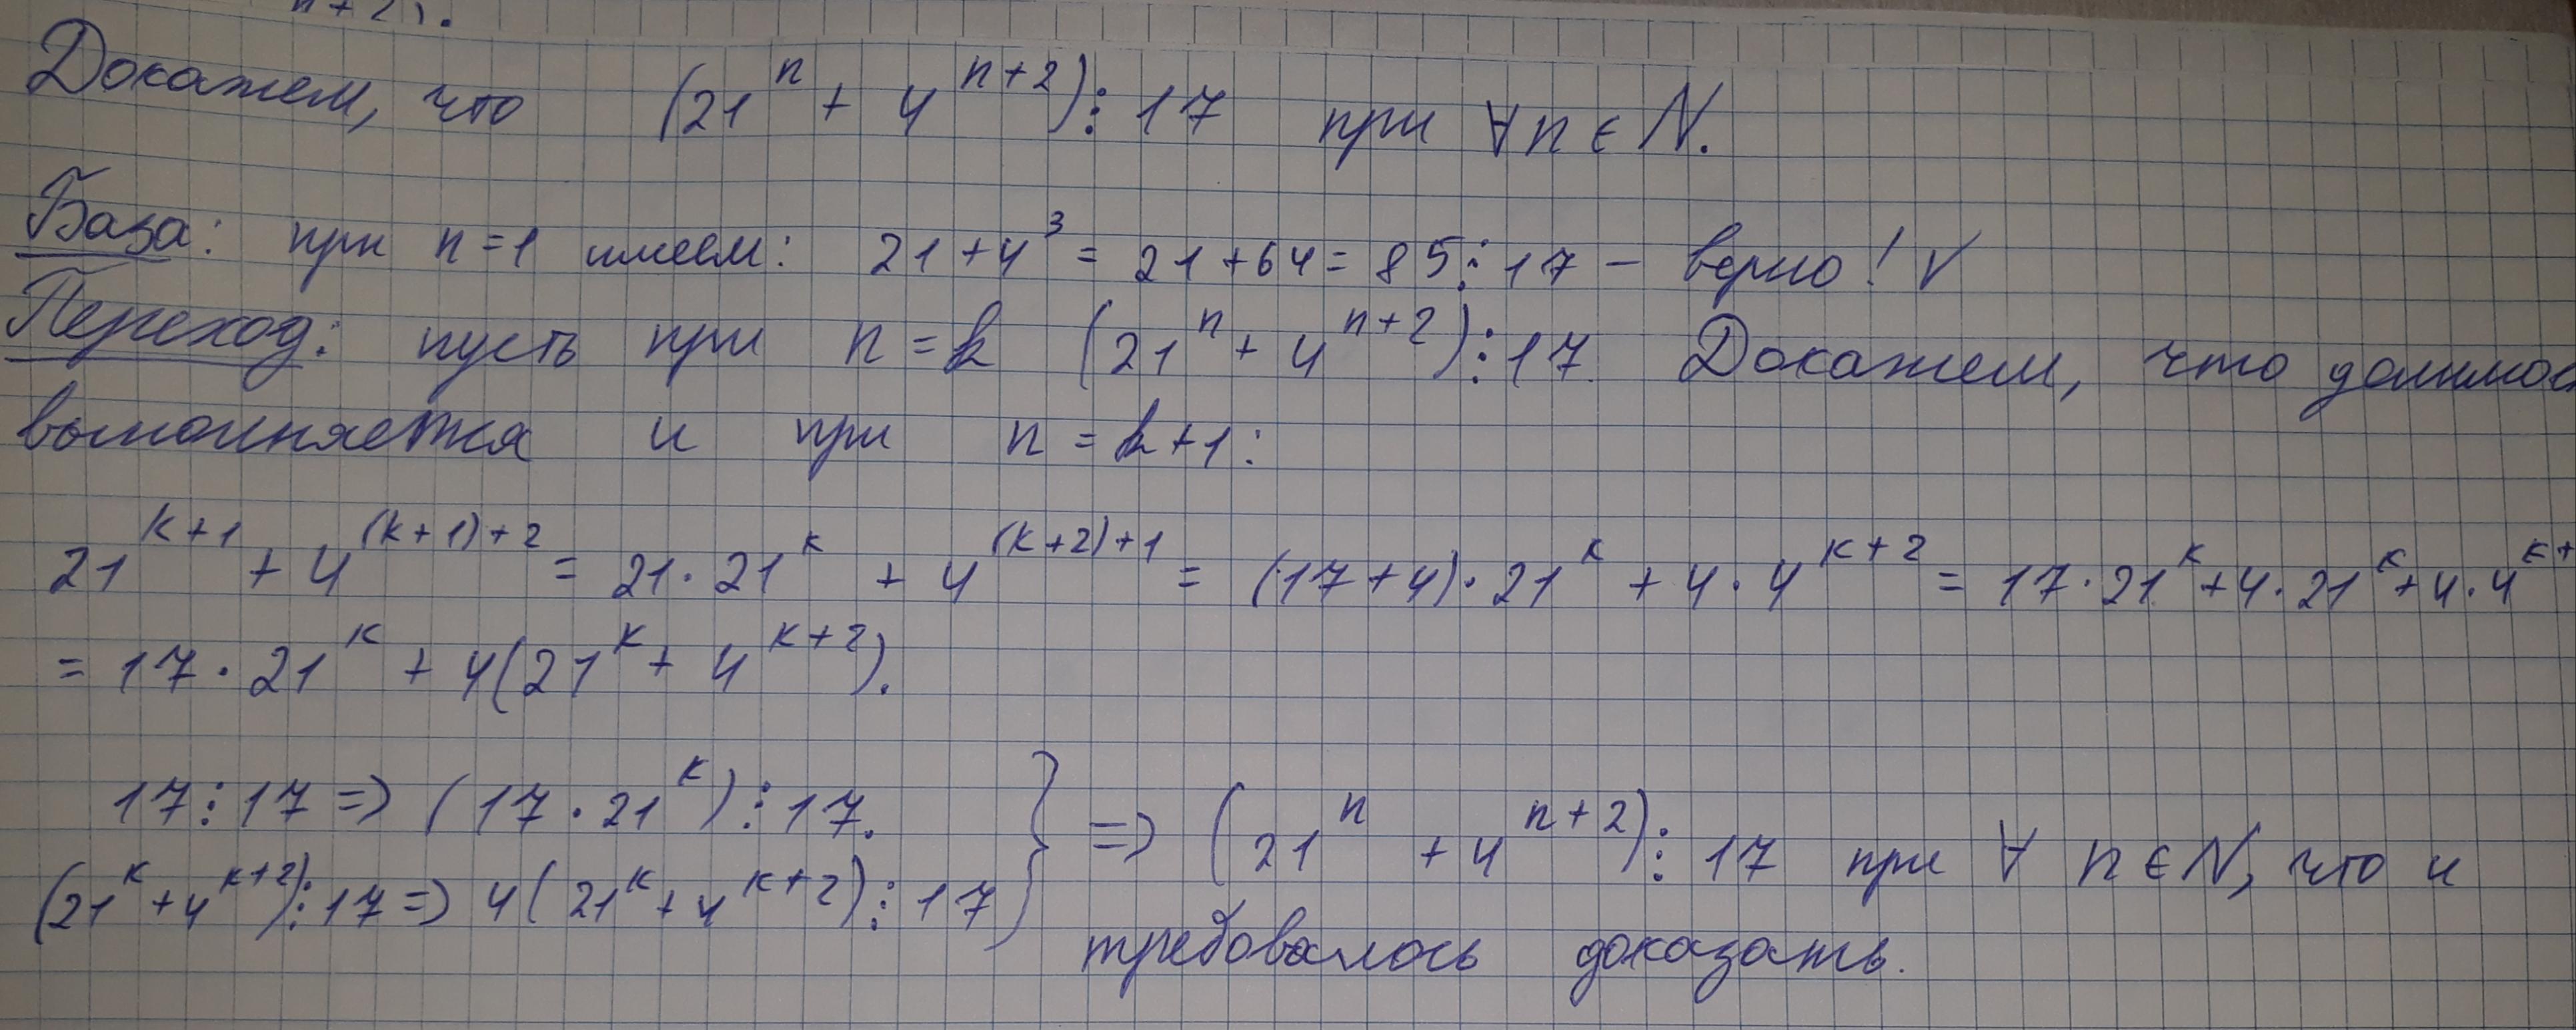 Докажем, что (21^n + 4^{n+2}) ⋮ 17 при ∀ n ∈ N.
База: при n = 1 имеем: 21 + 4^3 = 21 + 64 = 85 ⋮ 17 – верно! √
Переход: пусть при n = k (21^n + 4^{n+2}) ⋮ 17. Докажем, что
выполняется и при n = k+1:
21^{k+1} + 4^{(k+1)+2} = 21 · 21^k + 4^{(k+2)+1} = (17+4) · 21^k + 4 · 4^{k+2} = 17 · 21^k + 4 · 21^k + 4 · 4^{k+
= 17 · 21^k + 4(21^k + 4^{k+2}).
17 ⋮ 17 => (17 · 21^k) ⋮ 17.
(21^k + 4^{k+2}) ⋮ 17 => 4(21^k + 4^{k+2}) ⋮ 17 } => (21^n + 4^{n+2}) ⋮ 17 при ∀ n ∈ N, что и
требовалось доказать.